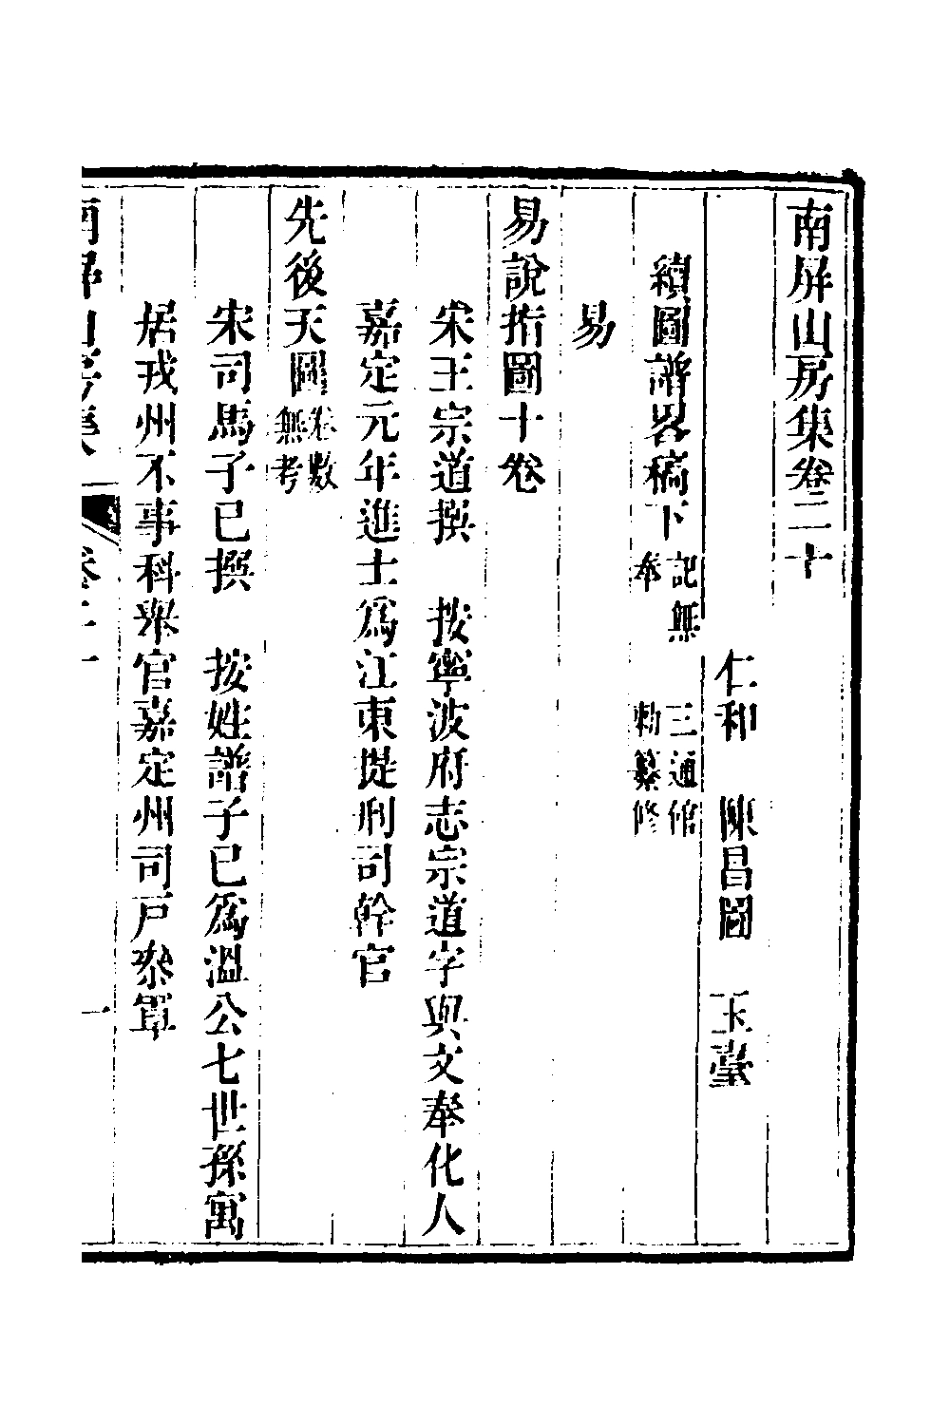 南屏山房集卷二十
仁和　陳昌圖　玉臺
續圖譜畧稿下 記無　三通館奉　勅纂修
易
易說指圖十卷
宋王宗道撰　按寧波府志宗道字與文奉化人
嘉定元年進士爲江東提刑司幹官
先後天圖 卷數無考
宋司馬子已撰　按姓譜子已爲溫公七世孫寓
居戎州不事科舉官嘉定州司戸參軍
南屏山房集 卷二十 一